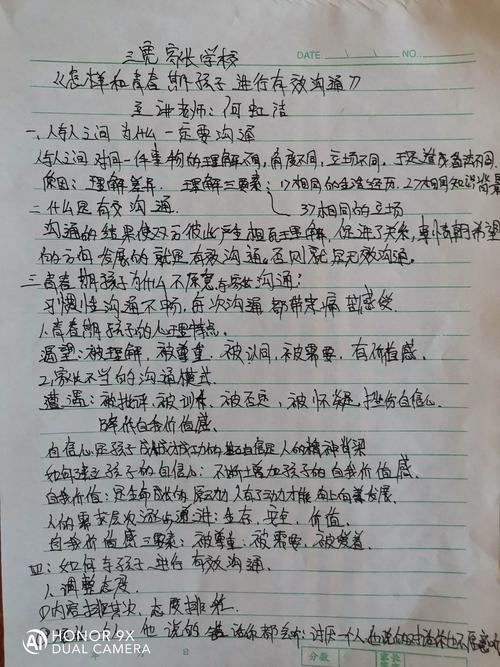 三宽家长学校
DATE NO.
《怎样和青春期孩子进行有效沟通》
主讲老师：何虹洁
一、人与人之间为什么一定要沟通
人与人之间对同一件事物的理解不同，角度不同，立场不同。于是造成看法不同
原因：理解差异. 理解三要素：1?相同的生活经历. 2?相同知识背景
3?相同的立场
二什么是有效沟通.
沟通的结果使双方彼此产生相互理解，促进了关系，事情朝希望
的方向发展的就是有效沟通，否则就是无效沟通。
三青春期孩子为什么不愿意与家长沟通：
习惯性沟通不畅，每次沟通都带来痛苦感受
1、青春期孩子的心理特点.
渴望：被理解，被尊重，被认同，被需要，有价值感.
2、家长不当的沟通模式.
遭遇：被批评，被训斥，被否定，被怀疑，挫伤自信心
降低自我价值感.
自信心是孩子成就成功的基石自信是人的精神脊梁
如何建立孩子的自信心：不断增加孩子的自我价值感.
自我价值：是生命成长的原动力人有了动力才能向上向善发展.
人的需求层次逐步递进：生存，安全，价值.
自我价值感三要素：被尊重，被需要，被爱着.
四：如何与孩子进行有效沟通.
1.调整态度.
①内容排其次，态度排第一.
他说的 话你都会 ：讨厌一个人他说的对话你也不愿意听
年 月 日
分数
家长
HONOR 9X
DUAL CAMERA